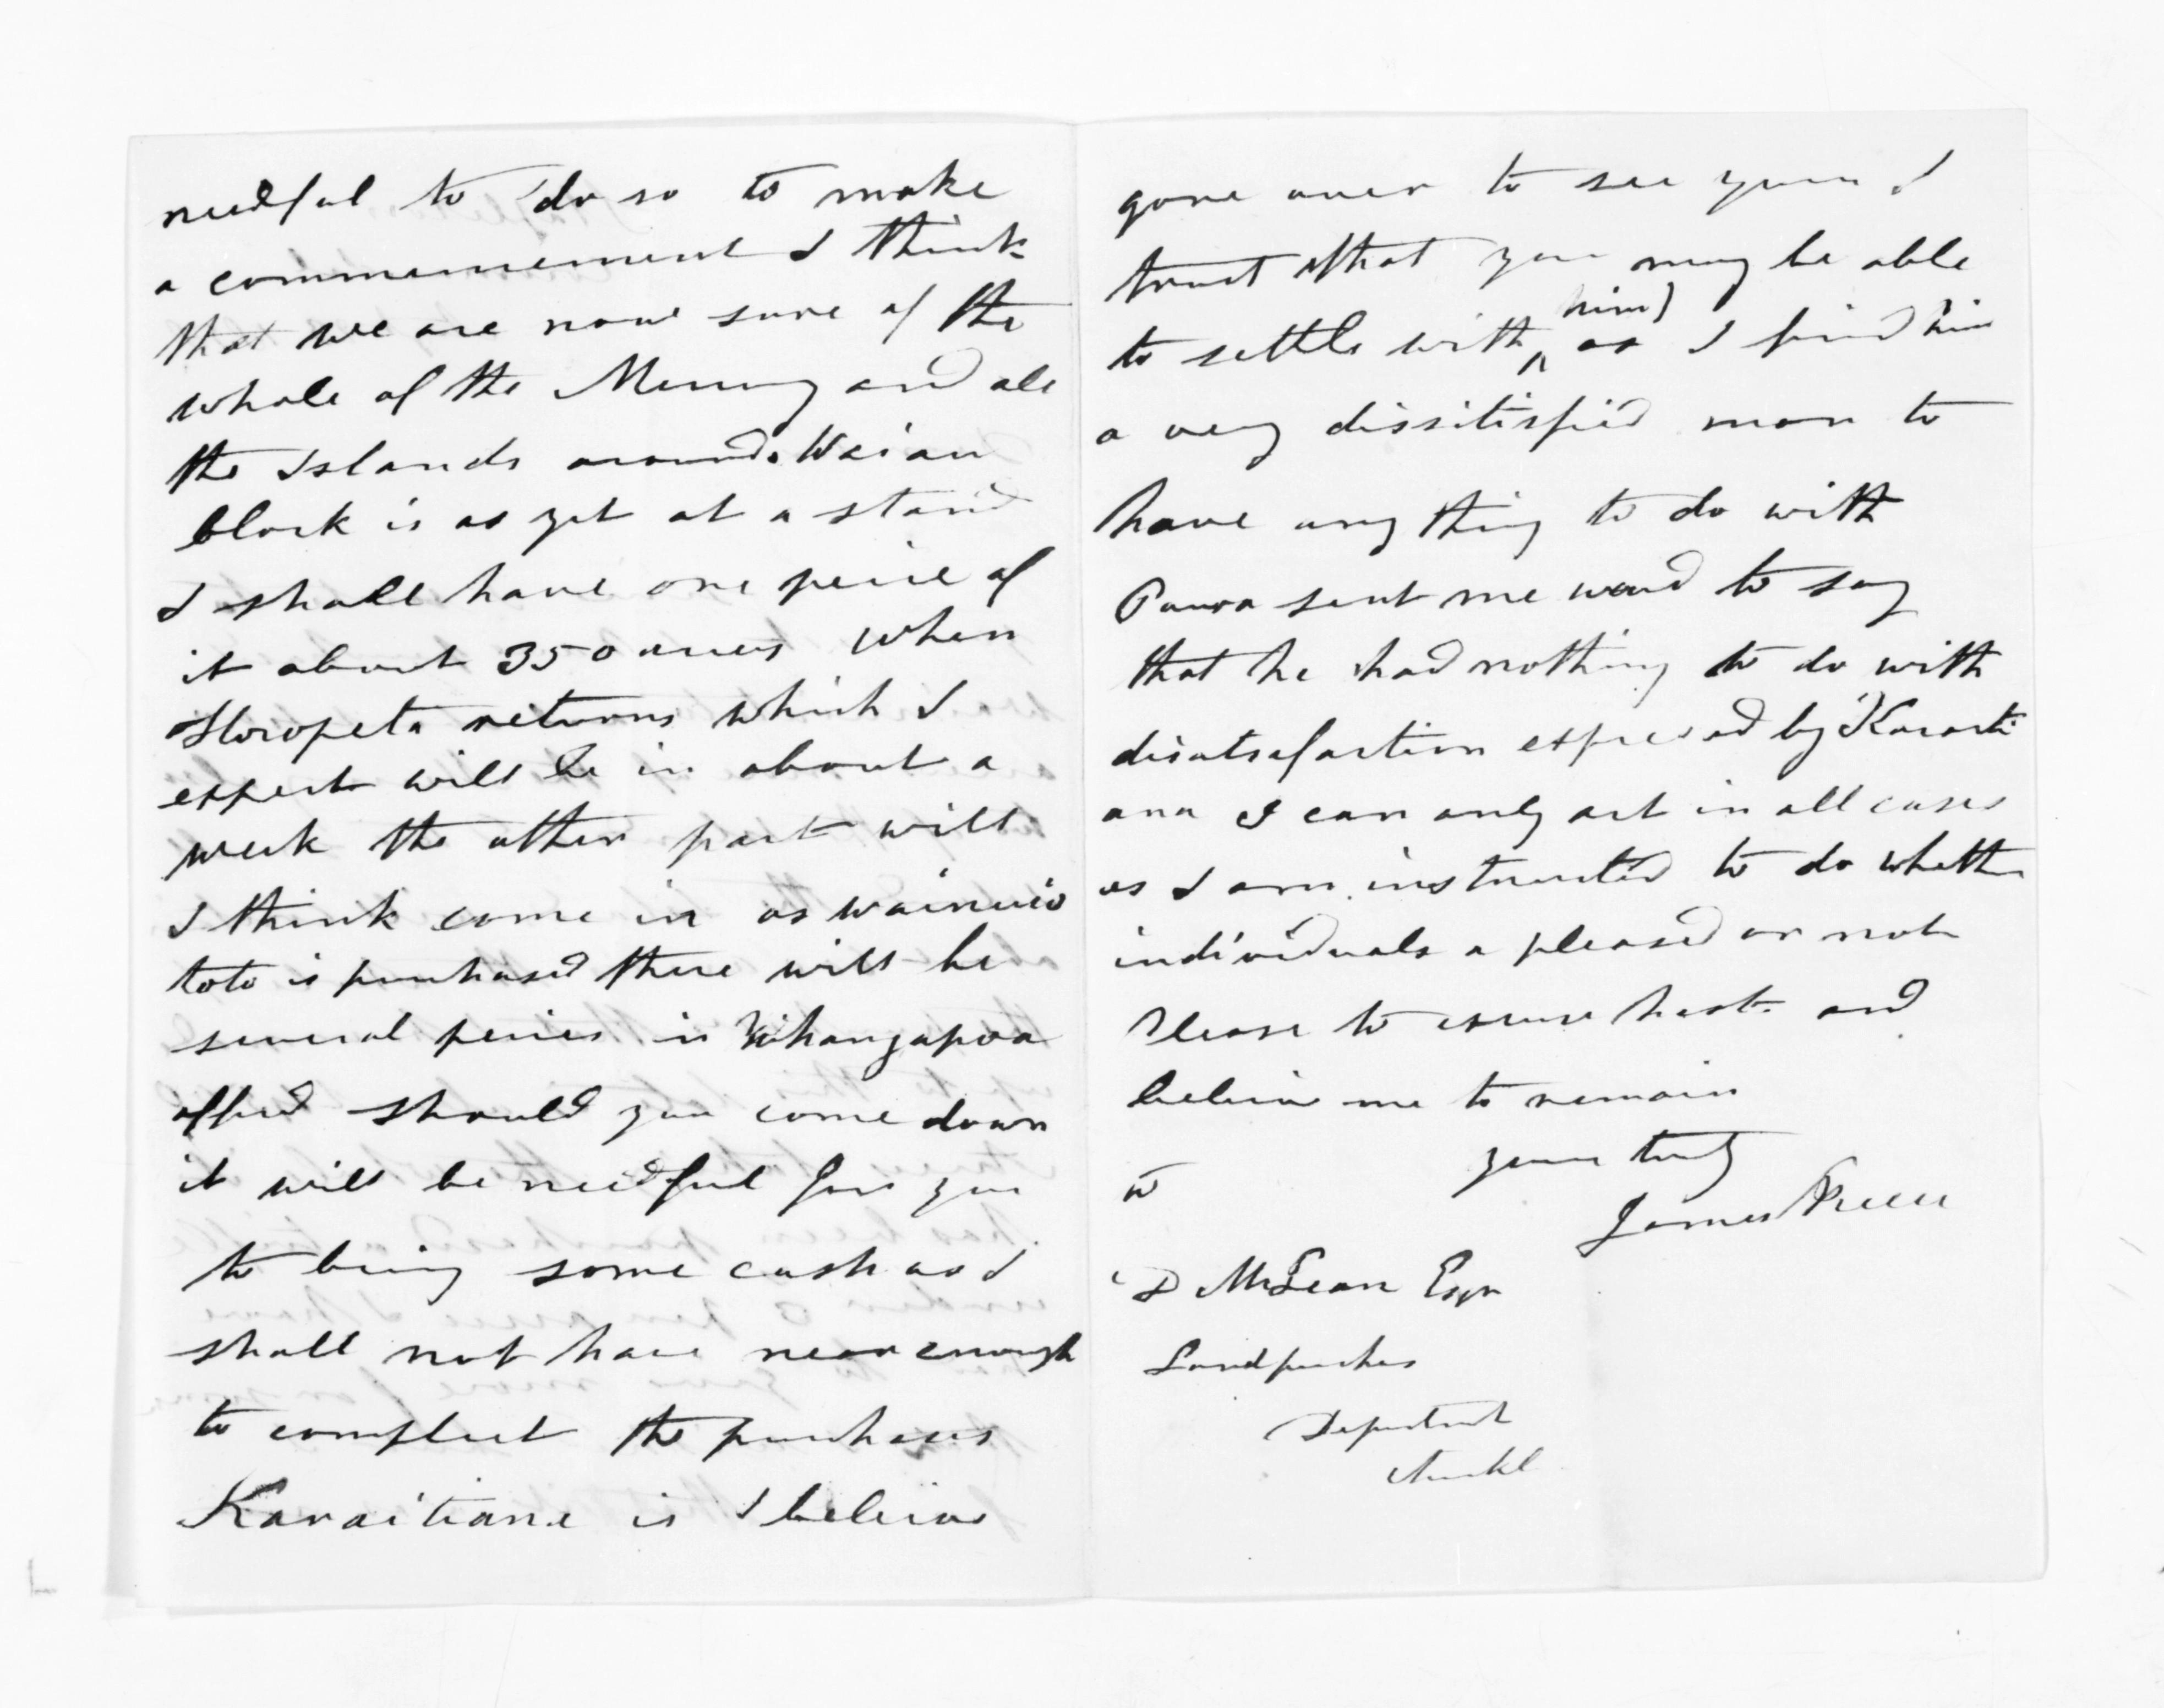 needful to do so to make
a commencement I think
that we are now sure of the
whole of the Mercury and all
the Islands around. Waiau
block is as yet at a stand
I shall have one peice of
it about 350 acres when
Horopeta returns which I
expect will be in about a
week the other part will
I think come in as Wainuio
toto is purhased there will be
several peices in Whangapoa
offered should you come down
it will be needful for you
to bring some cash as I
shall not have near enough
to compleet the purchases
Karaitiane is I beleive
gone over to see you I
trust that you may be able
to settle with him as I find him
a very dissitisfied man to
have any thing to do with
sent me word to say
that he had nothing to do with
disatsfaction expressed by Karaiti
ana I can only act in all cases
as I am instructed to do whether
individuals a pleased or not
Please to excuse haste and
beleive me to remain
yours truly
James Preece
to
D McLean Esqr
Land purchas
Department
Auckl